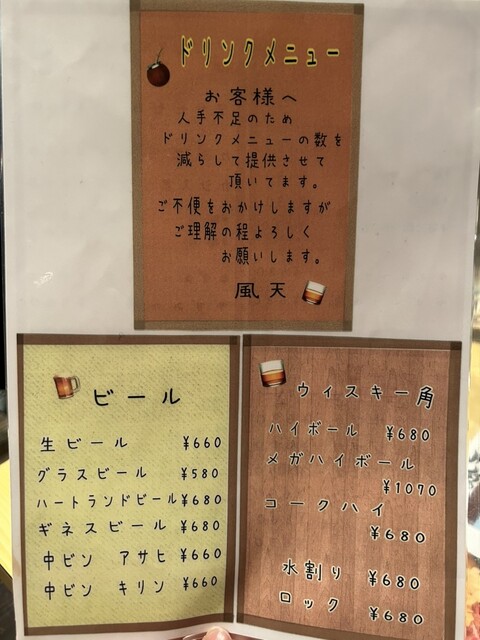 ドリンクメニュー
お客様へ
人手不足のため
ドリンクメニューの数を
減らして提供させて
頂いてます。
ご不便をおかけしますが
ご理解の程よろしく
お願いします。
風天
ビール
生ビール ¥660
グラスビール ¥580
ハートランドビール ¥680
ギネスビール ¥680
中ビン アサヒ ¥660
中ビン キリン ¥660
ウィスキー角
ハイボール ¥680
メガハイボール
¥1070
コークハイ
¥680
水割り ¥680
ロック ¥680